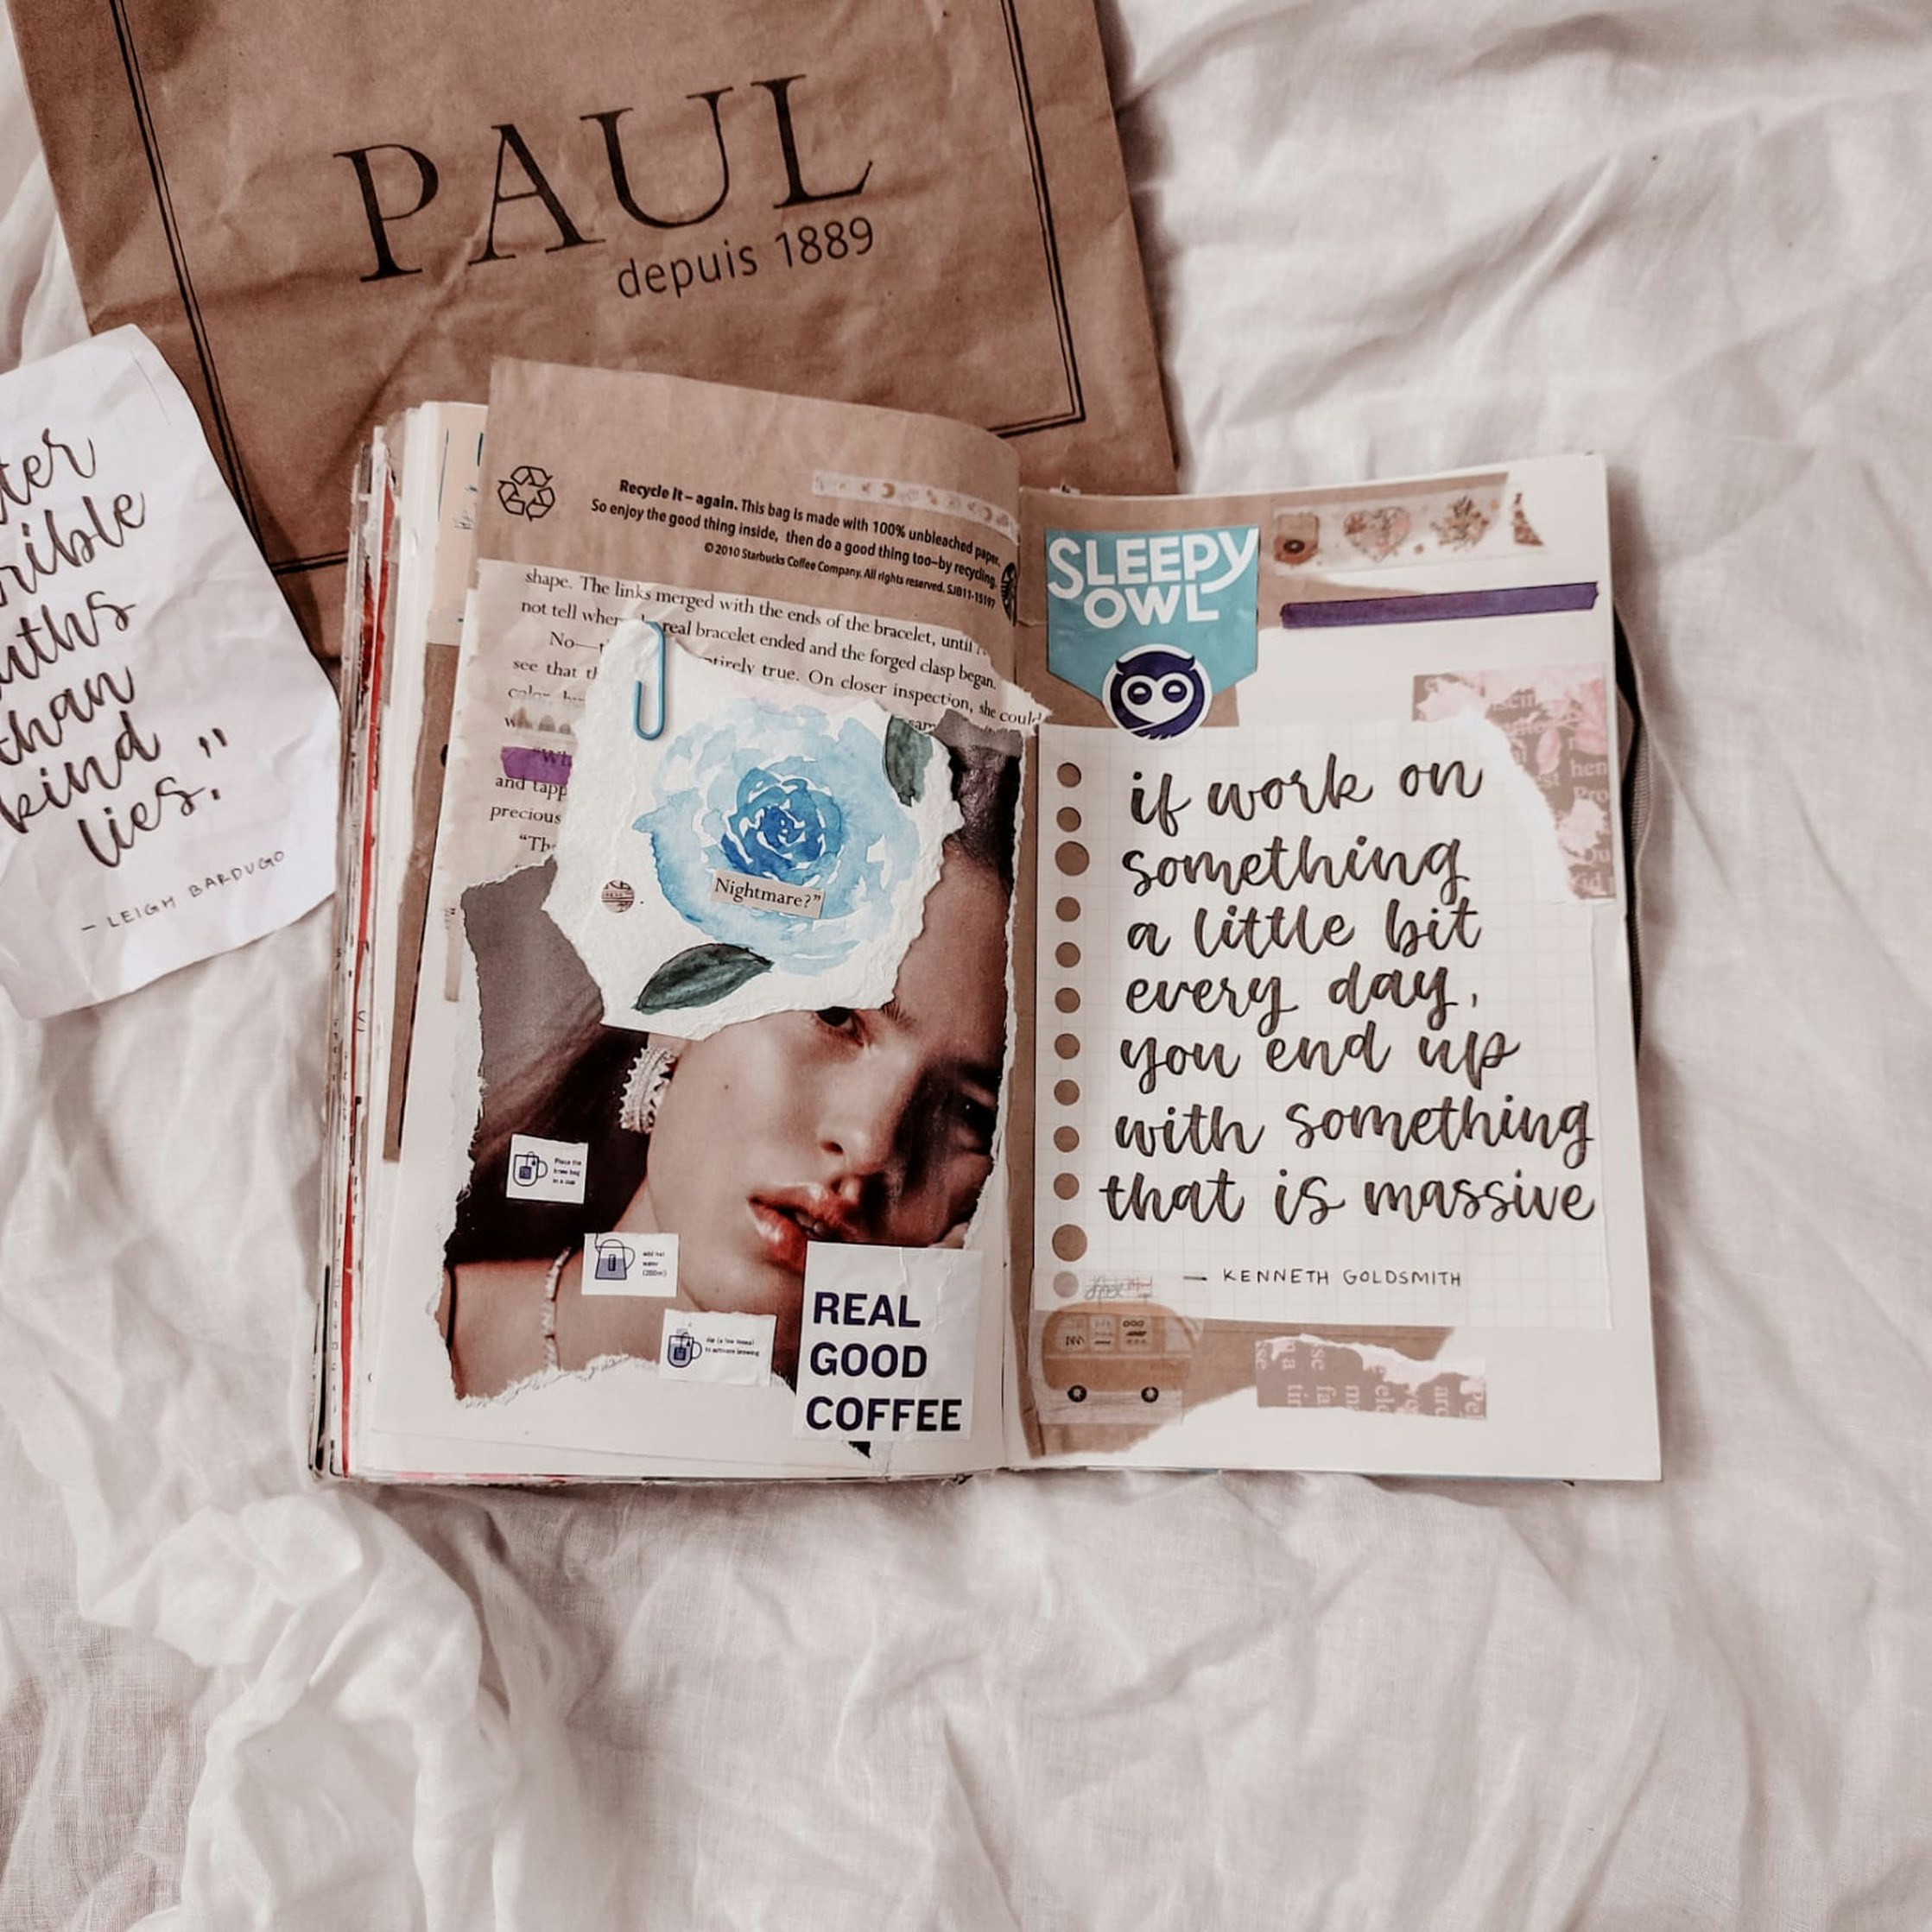 PAUL
depuis 1889
kind
lies."
- LEIGH BARDUGO
Recycle It – again. This bag is made with 100% unbleached paper.
So enjoy the good thing inside, then do a good thing too–by recycling.
© 2010 Starbucks Coffee Company. All rights reserved. SJ011-15197
shape. The links merged with the ends of the bracelet, until
not tell real bracelet ended and the forged clasp began.
No—
see that true. On closer inspection, she could
and
precious
Nightmare?"
Place the
brew bag
in a cup
add hot
water
REAL
GOOD
COFFEE
SLEEPY
OWL
if work on
something
a little bit
every day,
you end up
with something
that is massive
— KENNETH GOLDSMITH